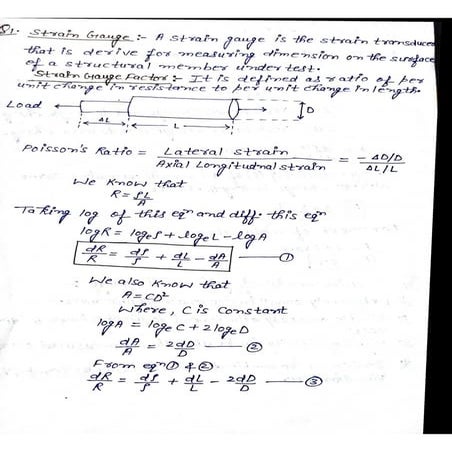 Q1. Strain Gauge :- A strain gauge is the strain transducer
that is derive for measuring dimension on the surface
of a structural member under test.
Strain Gauge Factor :- It is defined as ratio of per
unit change in resistance to per unit change in length.
Load ΔL L D
Poisson's Ratio = Lateral strain / Axial Longitudnal strain = -ΔD/D / ΔL/L
We know that
R = ρL/A
Taking log of this eqn and diff. this eqn
logR = logeρ + logeL - logA
dR/R = dρ/ρ + dL/L - dA/A —— ①
We also know that
A = CD²
Where, C is constant
logA = logeC + 2logeD
dA/A = 2dD/D —— ②
From eqn ① & ②
dR/R = dρ/ρ + dL/L - 2dD/D —— ③